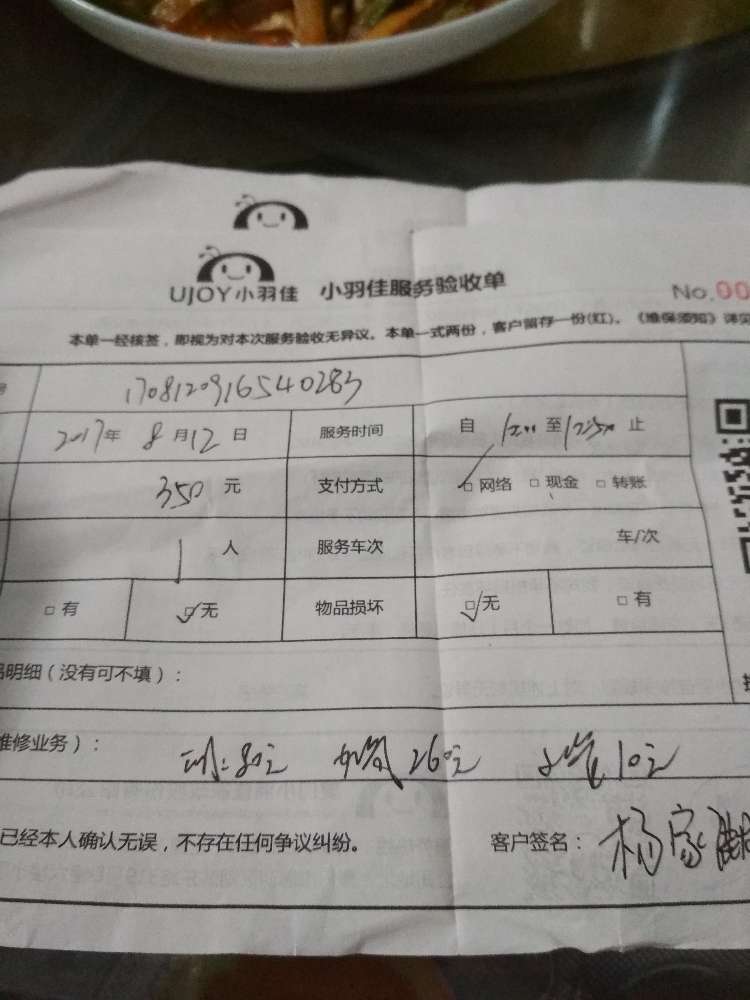 UJOY小羽佳 小羽佳服务验收单 No.00
本单一经核签，即视为对本次服务验收无异议。本单一式两份，客户留存一份(红)。《维保须知》详见
号 1708120916540283
2017年 8月12日 服务时间 自 至 止
350元 支付方式 □网络 □现金 □转账
1人 服务车次 车/次
□有 □无 物品损坏 □无 □有
品明细（没有可不填）：
维修业务）： 80元 260元 10元
已经本人确认无误，不存在任何争议纠纷。 客户签名：杨家